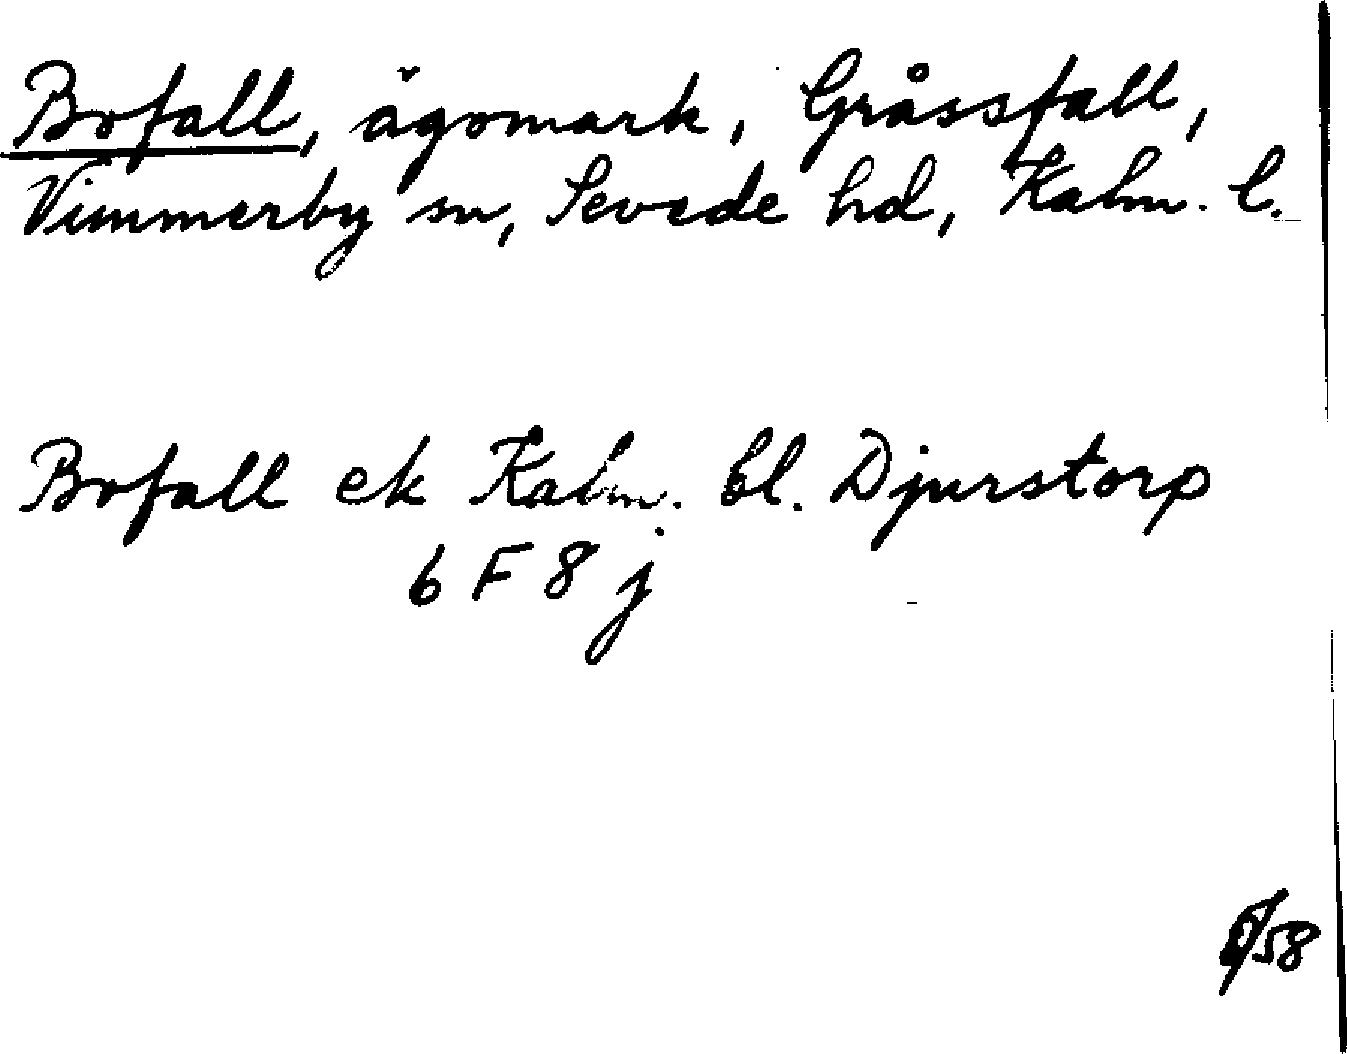 Bofall, ägomark, Gråssfall,
Vimmerby sn, Sevede hd, Kalm. l.
Bofall ek Kalm. bl. Djurstorp
6 F 8 j
/58